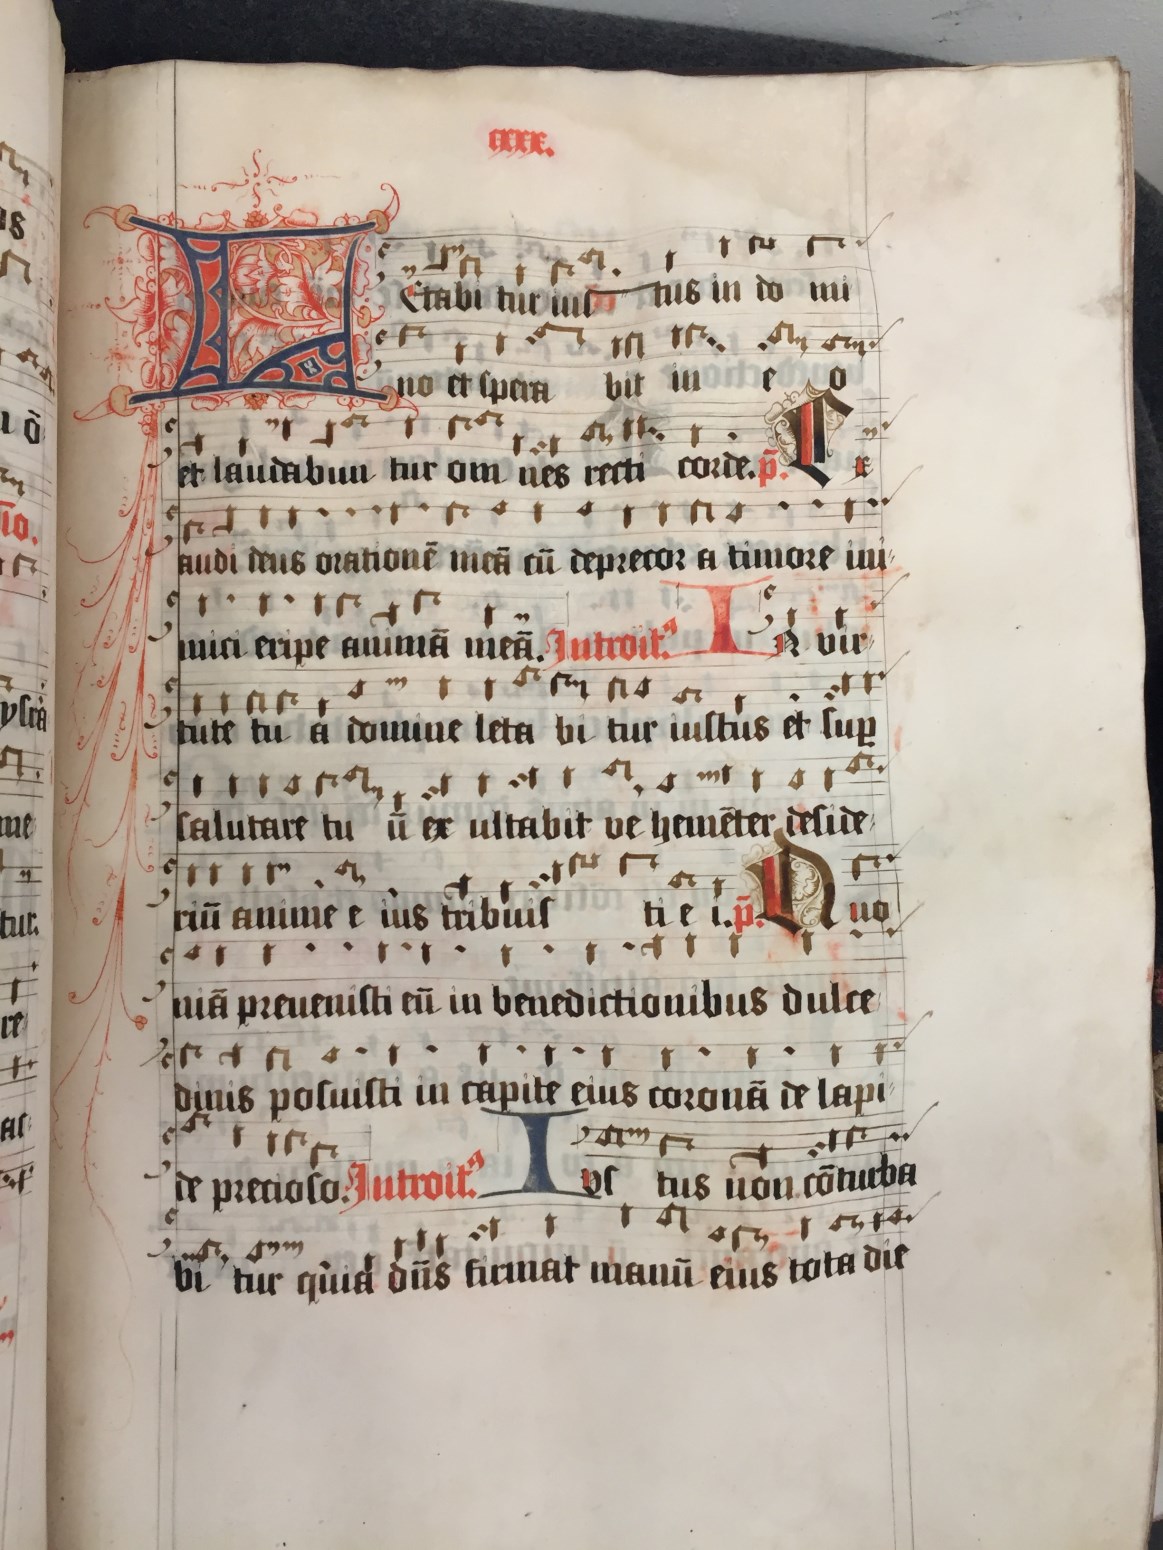 cxxx.
LEtabi tur ius tus in do mi
no et spera bit in e o
et laudabun tur om nēs recti corde. p̄. Ex
audi deus orationē meā cū deprecor a timore ini
mici eripe animā meā. Introit⁹ IN vir
tute tu a domine leta bi tur iustus et sup
salutare tu ū ex ultabit ve hemēter deside
riū anime e ius tribuis ti e i. p̄. Quo
niā preuenisti eū in benedictionibus dulce
dinis posuisti in capite eius coronā de lapi
de precioso. Introit⁹ IVs tus non cōturba
bi tur quia dn̄s firmat manū eius tota die